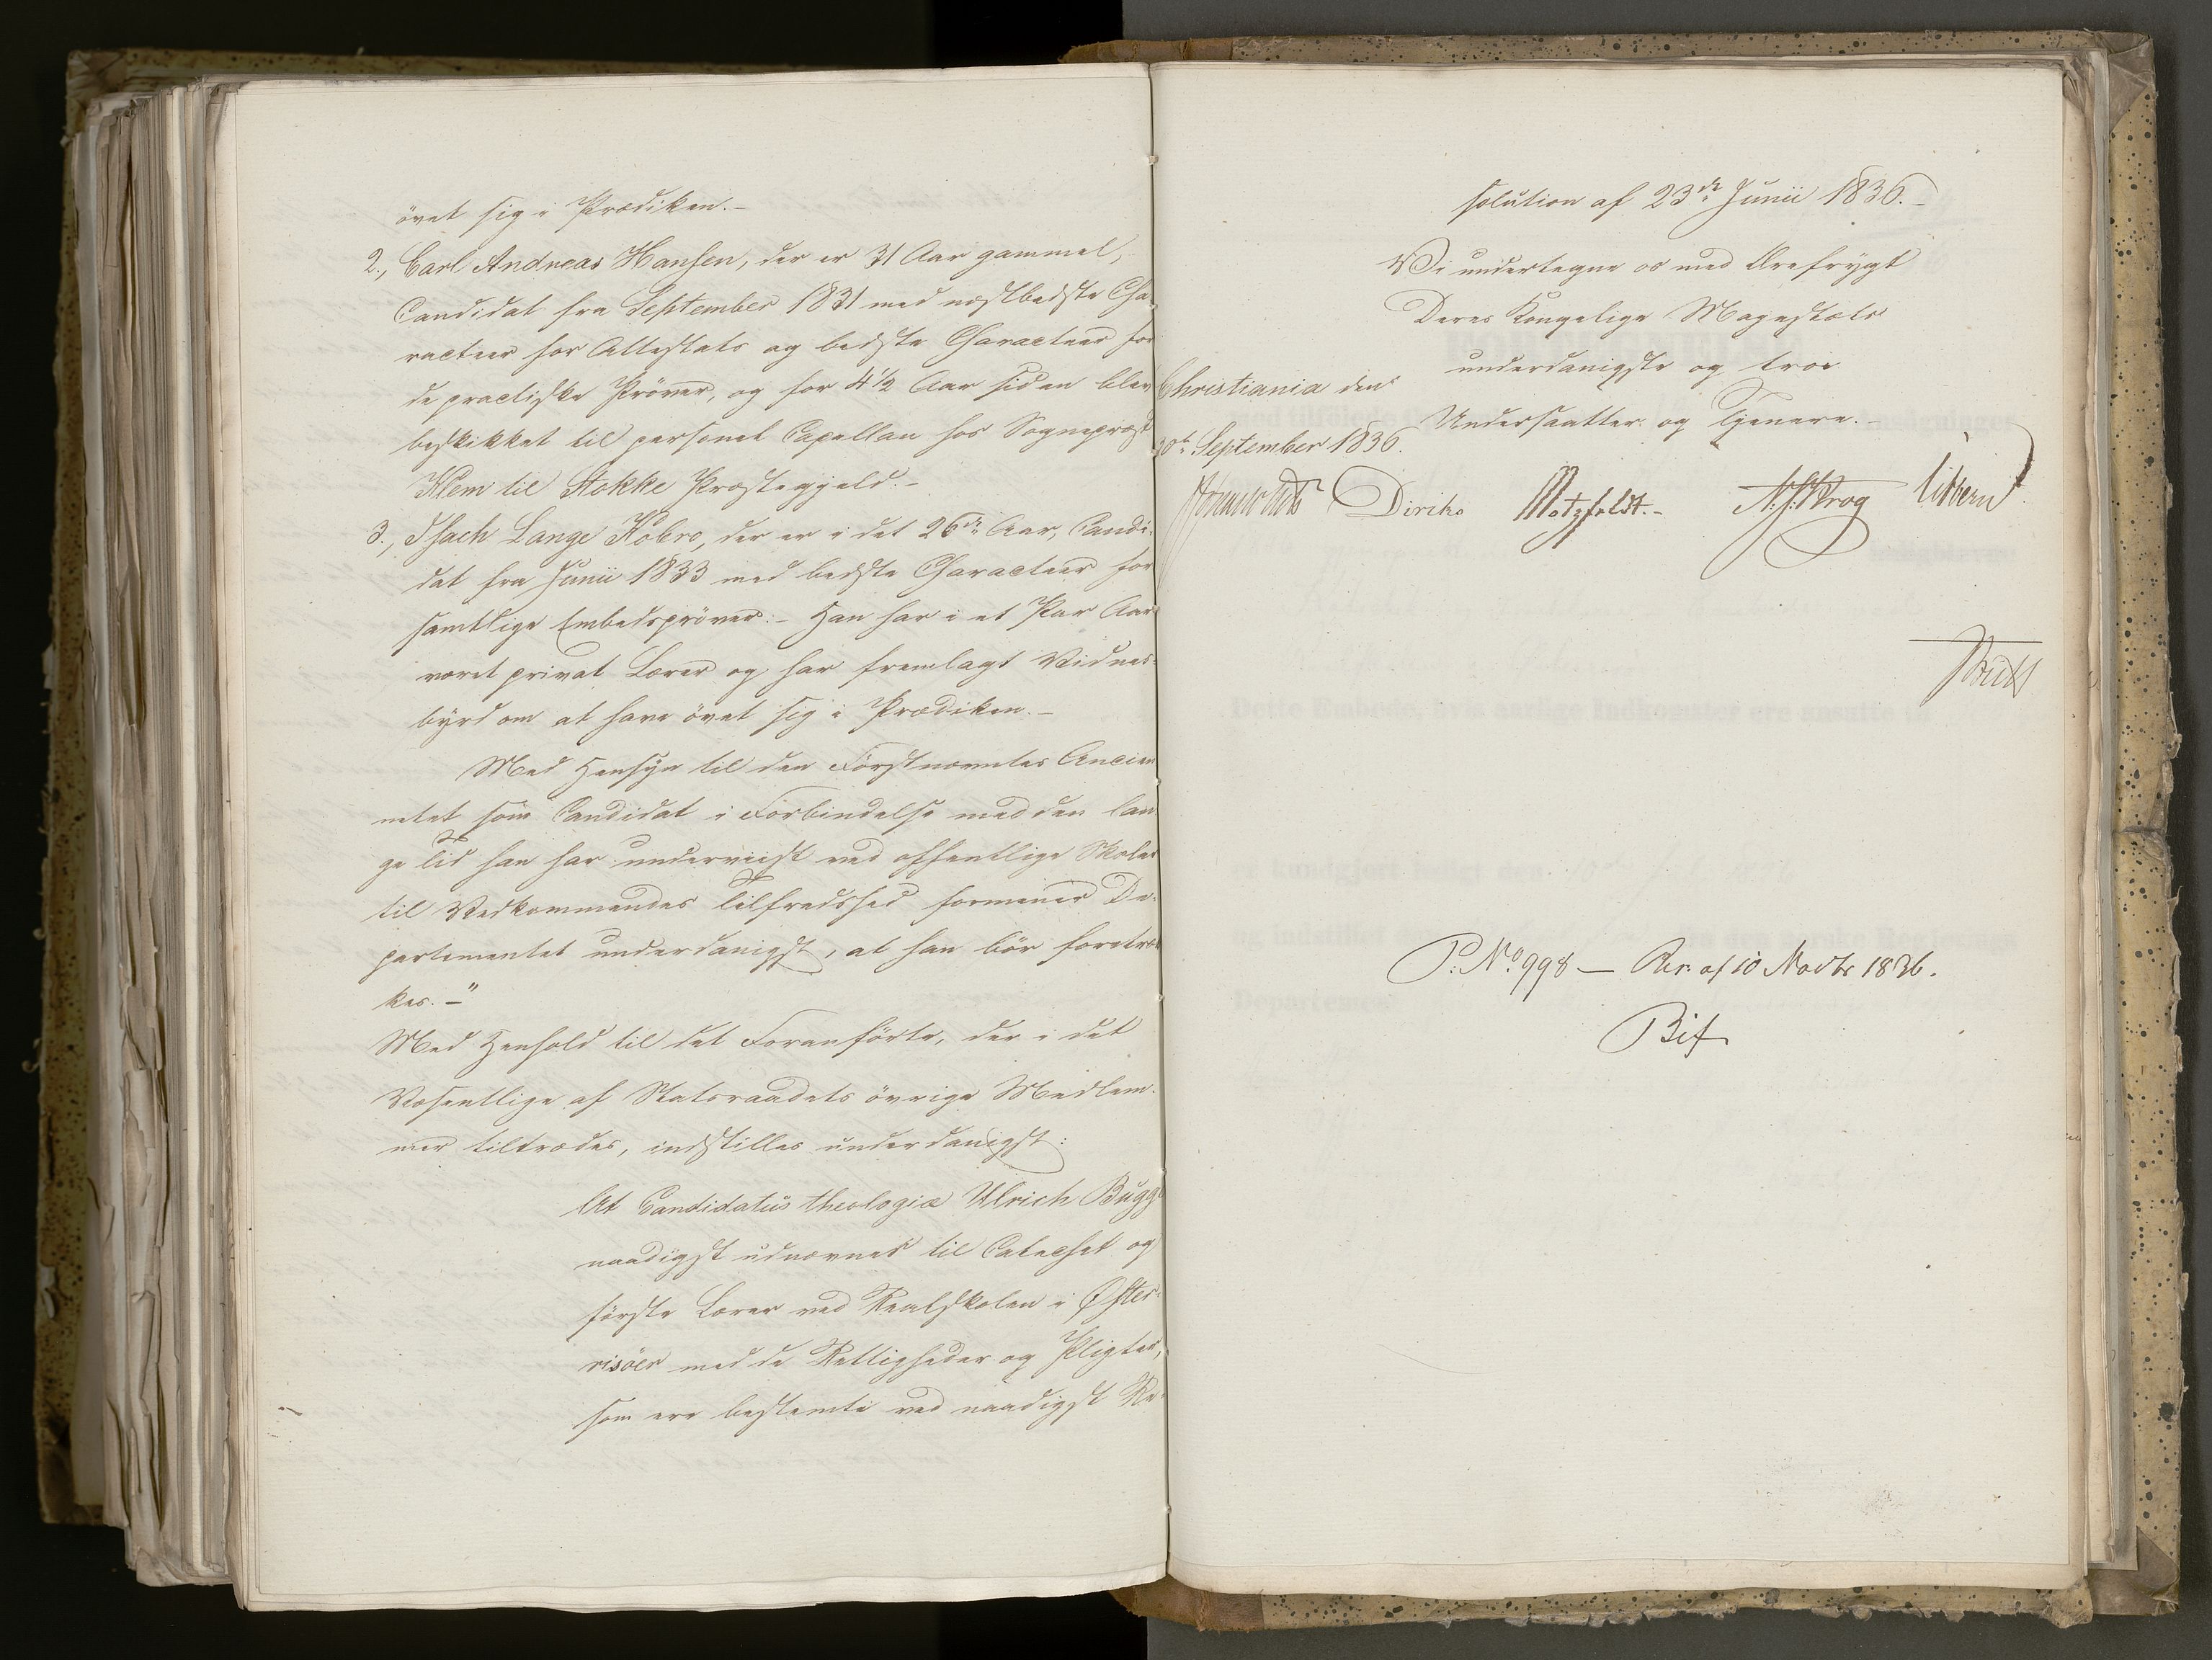 övet sig i Prædiken. –
2., Carl Andreas Hansen, der er 31 Aar gammel,
Candidat fra September 1831 med næstbedste Cha-
racteer for Attestats og bedste Characteer for
de practiske Prøver, og for 4½ Aar siden blev
beskikket til personel Capellan hos Sognepræst
Klem til Stokke Præstegjeld. –
3., Isach Lange Kobro, der er i det 26de Aar, Candi-
dat fra Junii 1833 med bedste Characteer for
samtlige Embedsprøver. – Han har i et Par Aar
været privat Lærer og har fremlagt Vidnes-
byrd om at have övet sig i Prædiken. –
Med Hensyn til den Förstnævntes Ancien-
netet som Candidat i Forbindelse med den lan-
ge Tid han har underviist ved offentlige Skoler
til Vedkommendes Tilfredshed formener De-
partementet underdanigst, at han bör foretræk-
kes. – "
Med Henhold til det Foranförte, der i det
Væsentlige af Statsraadets övrige Medlem-
mer tiltrædes, indstilles underdanigst:
At Candidatus theologiæ Ulrich Bugge
naadigst udnævnes til Catechet og
förste Lærer ved Realskolen i Øster-
risöer med de Rettigheder og Pligter,
som ere bestemte ved naadigst Re-
solution af 23de Junii 1836. –
Vi undertegne os med Ærefrygt
Deres Kongelige Majestæts
underdanigste og troe
Undersaatter og Tjenere. –
Christiania den
September 1836.
Diriks Motzfeldt. – N. J. Krog
P. No 998 – Res. af 10 Novbr 1836.
Bif.